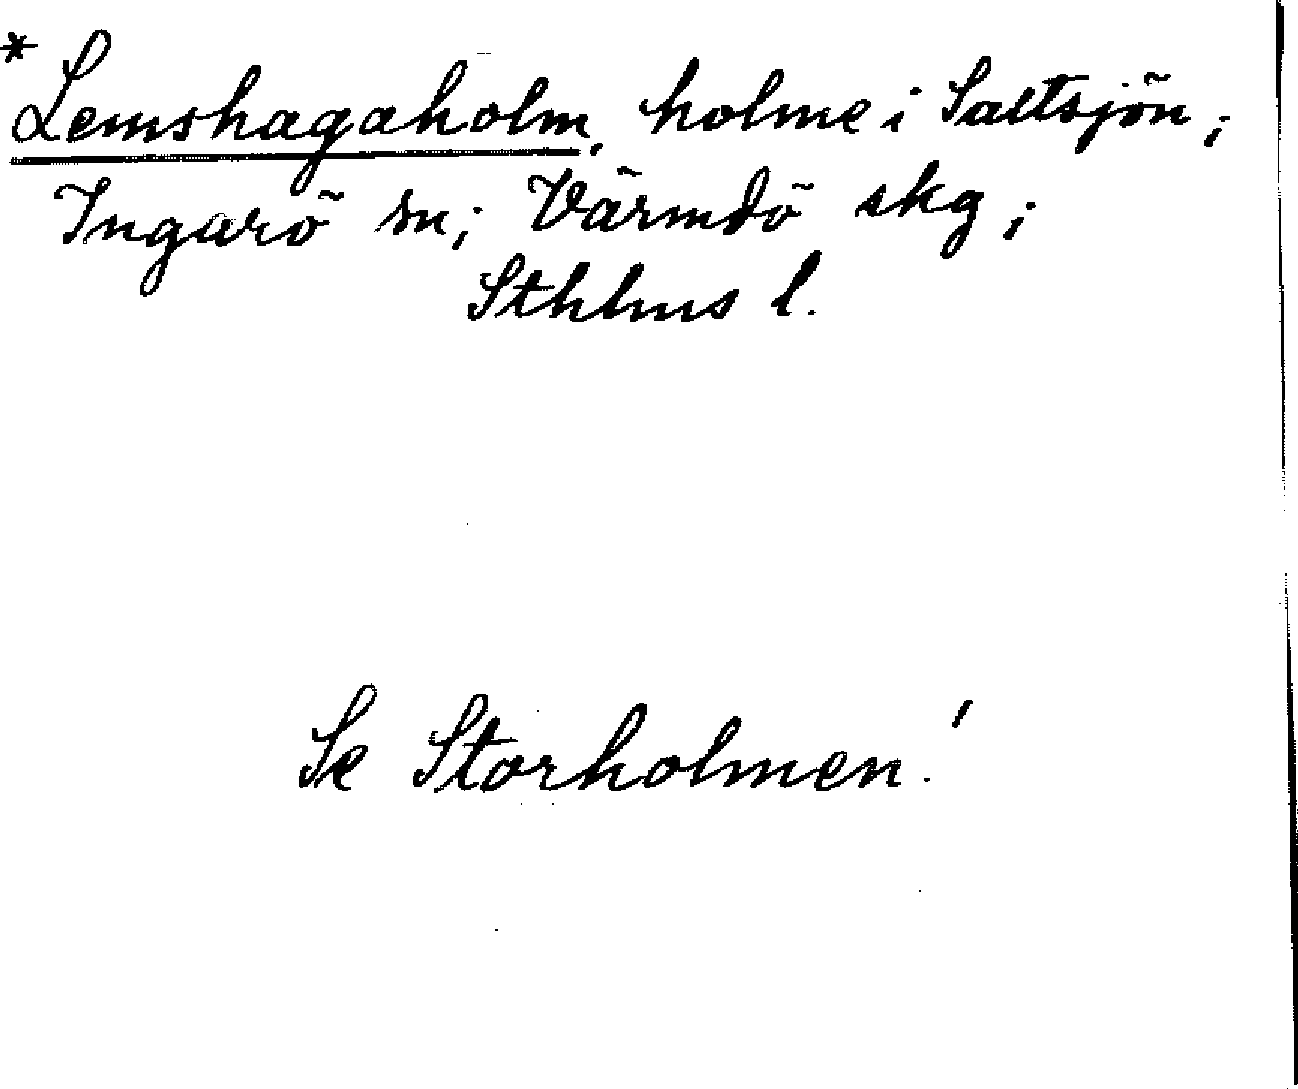 * Lemshagaholm, holme i Saltsjön;
Ingarö sn; Värmdö skg;
Sthlms l.
Se Storholmen!